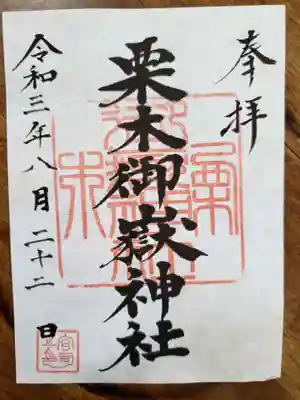 奉拝
栗木御嶽神社
令和三年八月二十二日